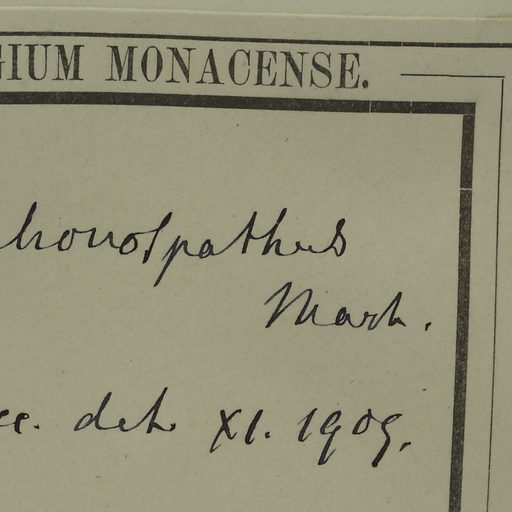 GIUM MONACENSE.
honospathus
Mart.
det. XI. 1909.